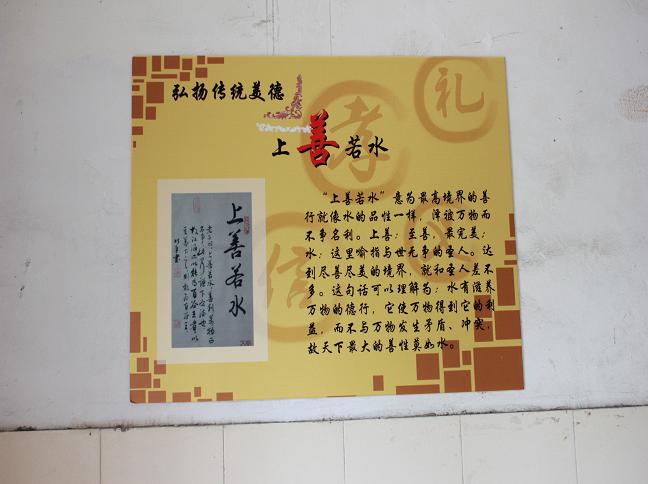 弘扬传统美德
礼
孝
信
上善若水
上善若水
“上善若水”意为最高境界的善
行就像水的品性一样，泽被万物而
不争名利。上善：至善，最完美；
水：这里喻指与世无争的圣人。达
到尽善尽美的境界，就和圣人差不
多。这句话可以理解为：水有滋养
万物的德行，它使万物得到它的利
益，而不与万物发生矛盾、冲突，
故天下最大的善性莫如水。